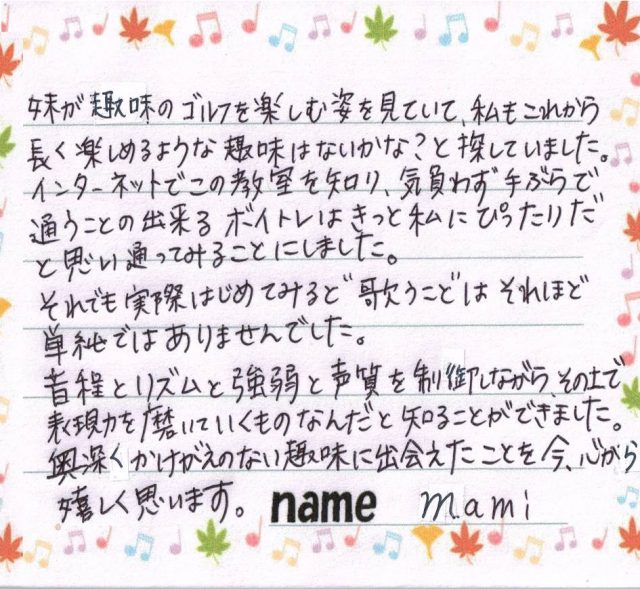 妹が趣味のゴルフを楽しむ姿を見ていて、私もこれから
長く楽しめるような趣味はないかな?と探していました。
インターネットでこの教室を知り、気負わず手ぶらで
通うことの出来るボイトレはきっと私にぴったりだ
と思い通ってみることにしました。
それでも実際はじめてみると"歌うこと"はそれほど
単純ではありませんでした。
音程とリズムと強弱と声質を制御しながら、その上で
表現力を磨いていくものなんだと知ることができました。
奥深くかけがえのない趣味に出会えたことを今、心から
嬉しく思います。 name m.ami